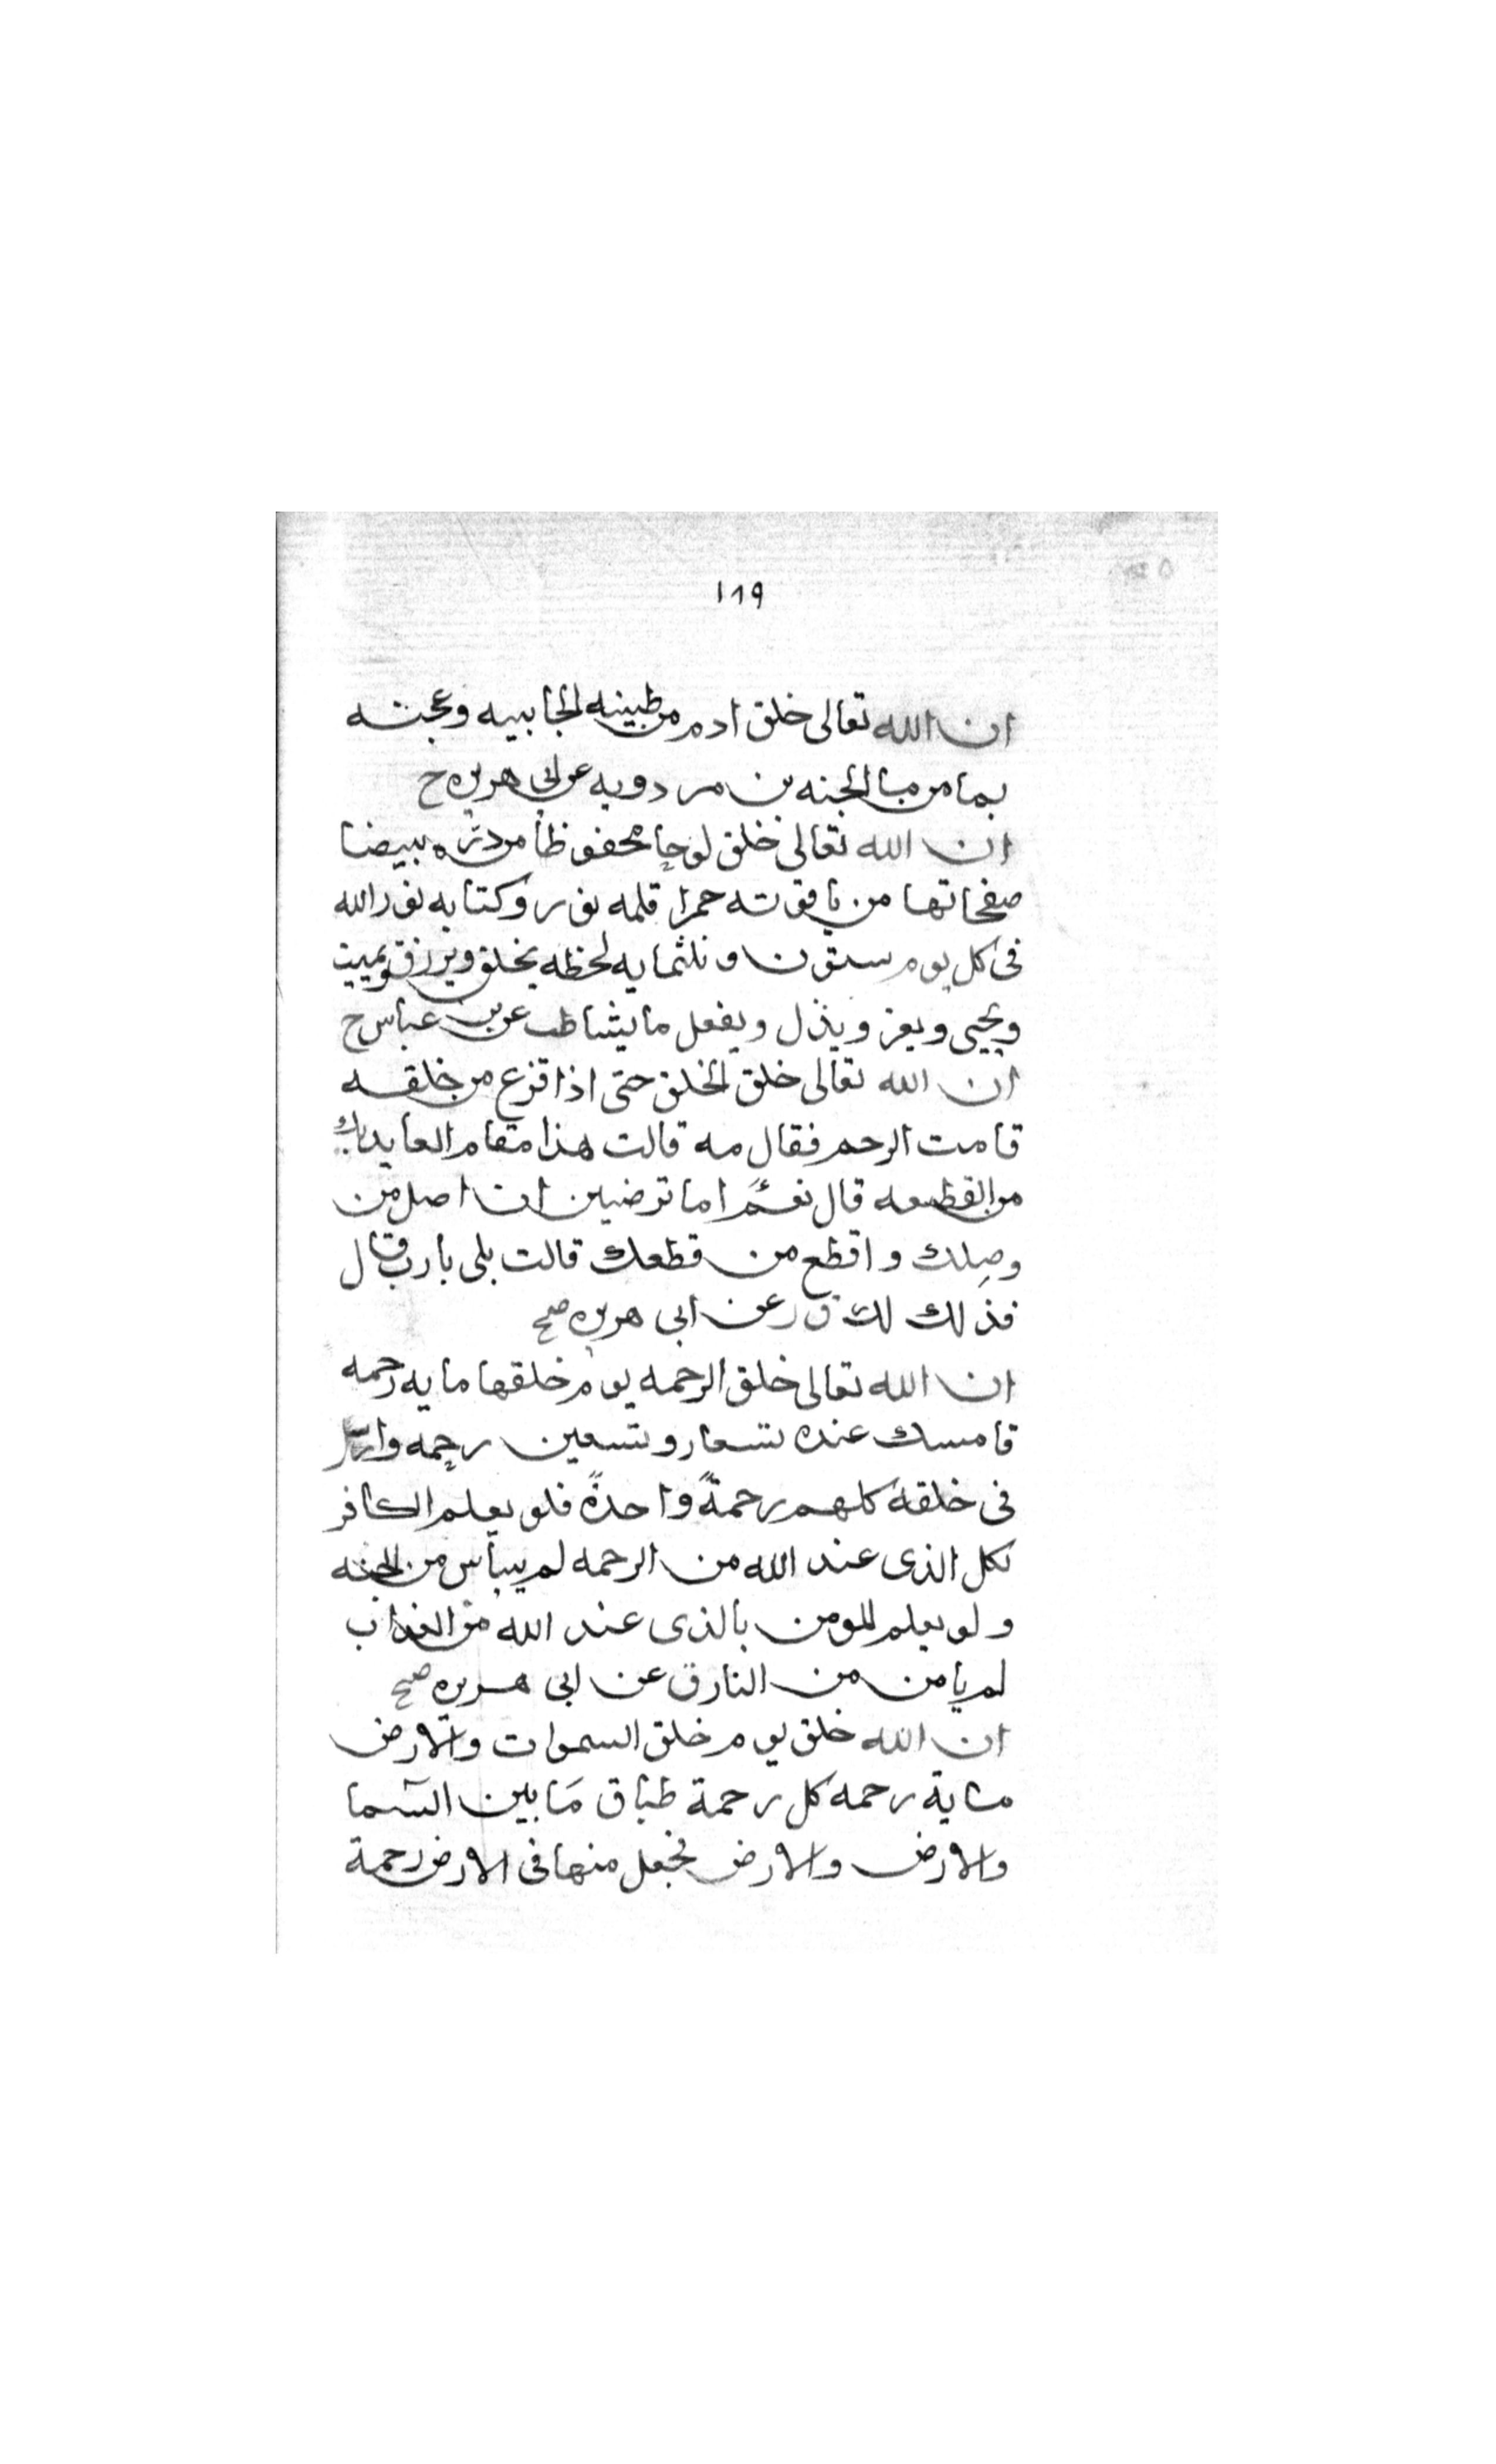 ١٨٩
ان الله تعالى خلق ادم من طينه الجابيه وعجنه
بما من ما الجنه بن مردويه عن ابي هريره ح
ان الله تعالى خلق لوحا محفوظا من دره بيضا
صفحاتها من ياقوته حمرا قلمه نور وكتابه نور الله
فى كل يوم ستون وثلثمايه لحظه يخلق ويرزق ويميت
ويحيى ويعز ويذل ويفعل ما يشا طب عن بن عباس ح
ان الله تعالى خلق الخلق حتى اذا فزع من خلقه
قامت الرحم فقال مه قالت هذا مقام العايد بك
من القطيعه قال نعم اما ترضين ان اصل من
وصلك واقطع من قطعك قالت بلى يا رب قال
فذلك لك ق ن عن ابى هريره صح
ان الله تعالى خلق الرحمه يوم خلقها مايه رحمه
فامسك عنده تسعا وتسعين رحمه وارسل
فى خلقه كلهم رحمةً واحدةً فلو يعلم الكافر
بكل الذى عند الله من الرحمه لم ييأس من الجنه
ولو يعلم المومن بالذى عند الله من العذاب
لم يامن من النار ق عن ابى هريره صح
ان الله خلق يوم خلق السموات والارض
ماية رحمه كل رحمة طباق مَا بين السما
والارض والارض فجعل منها فى الارض رحمة